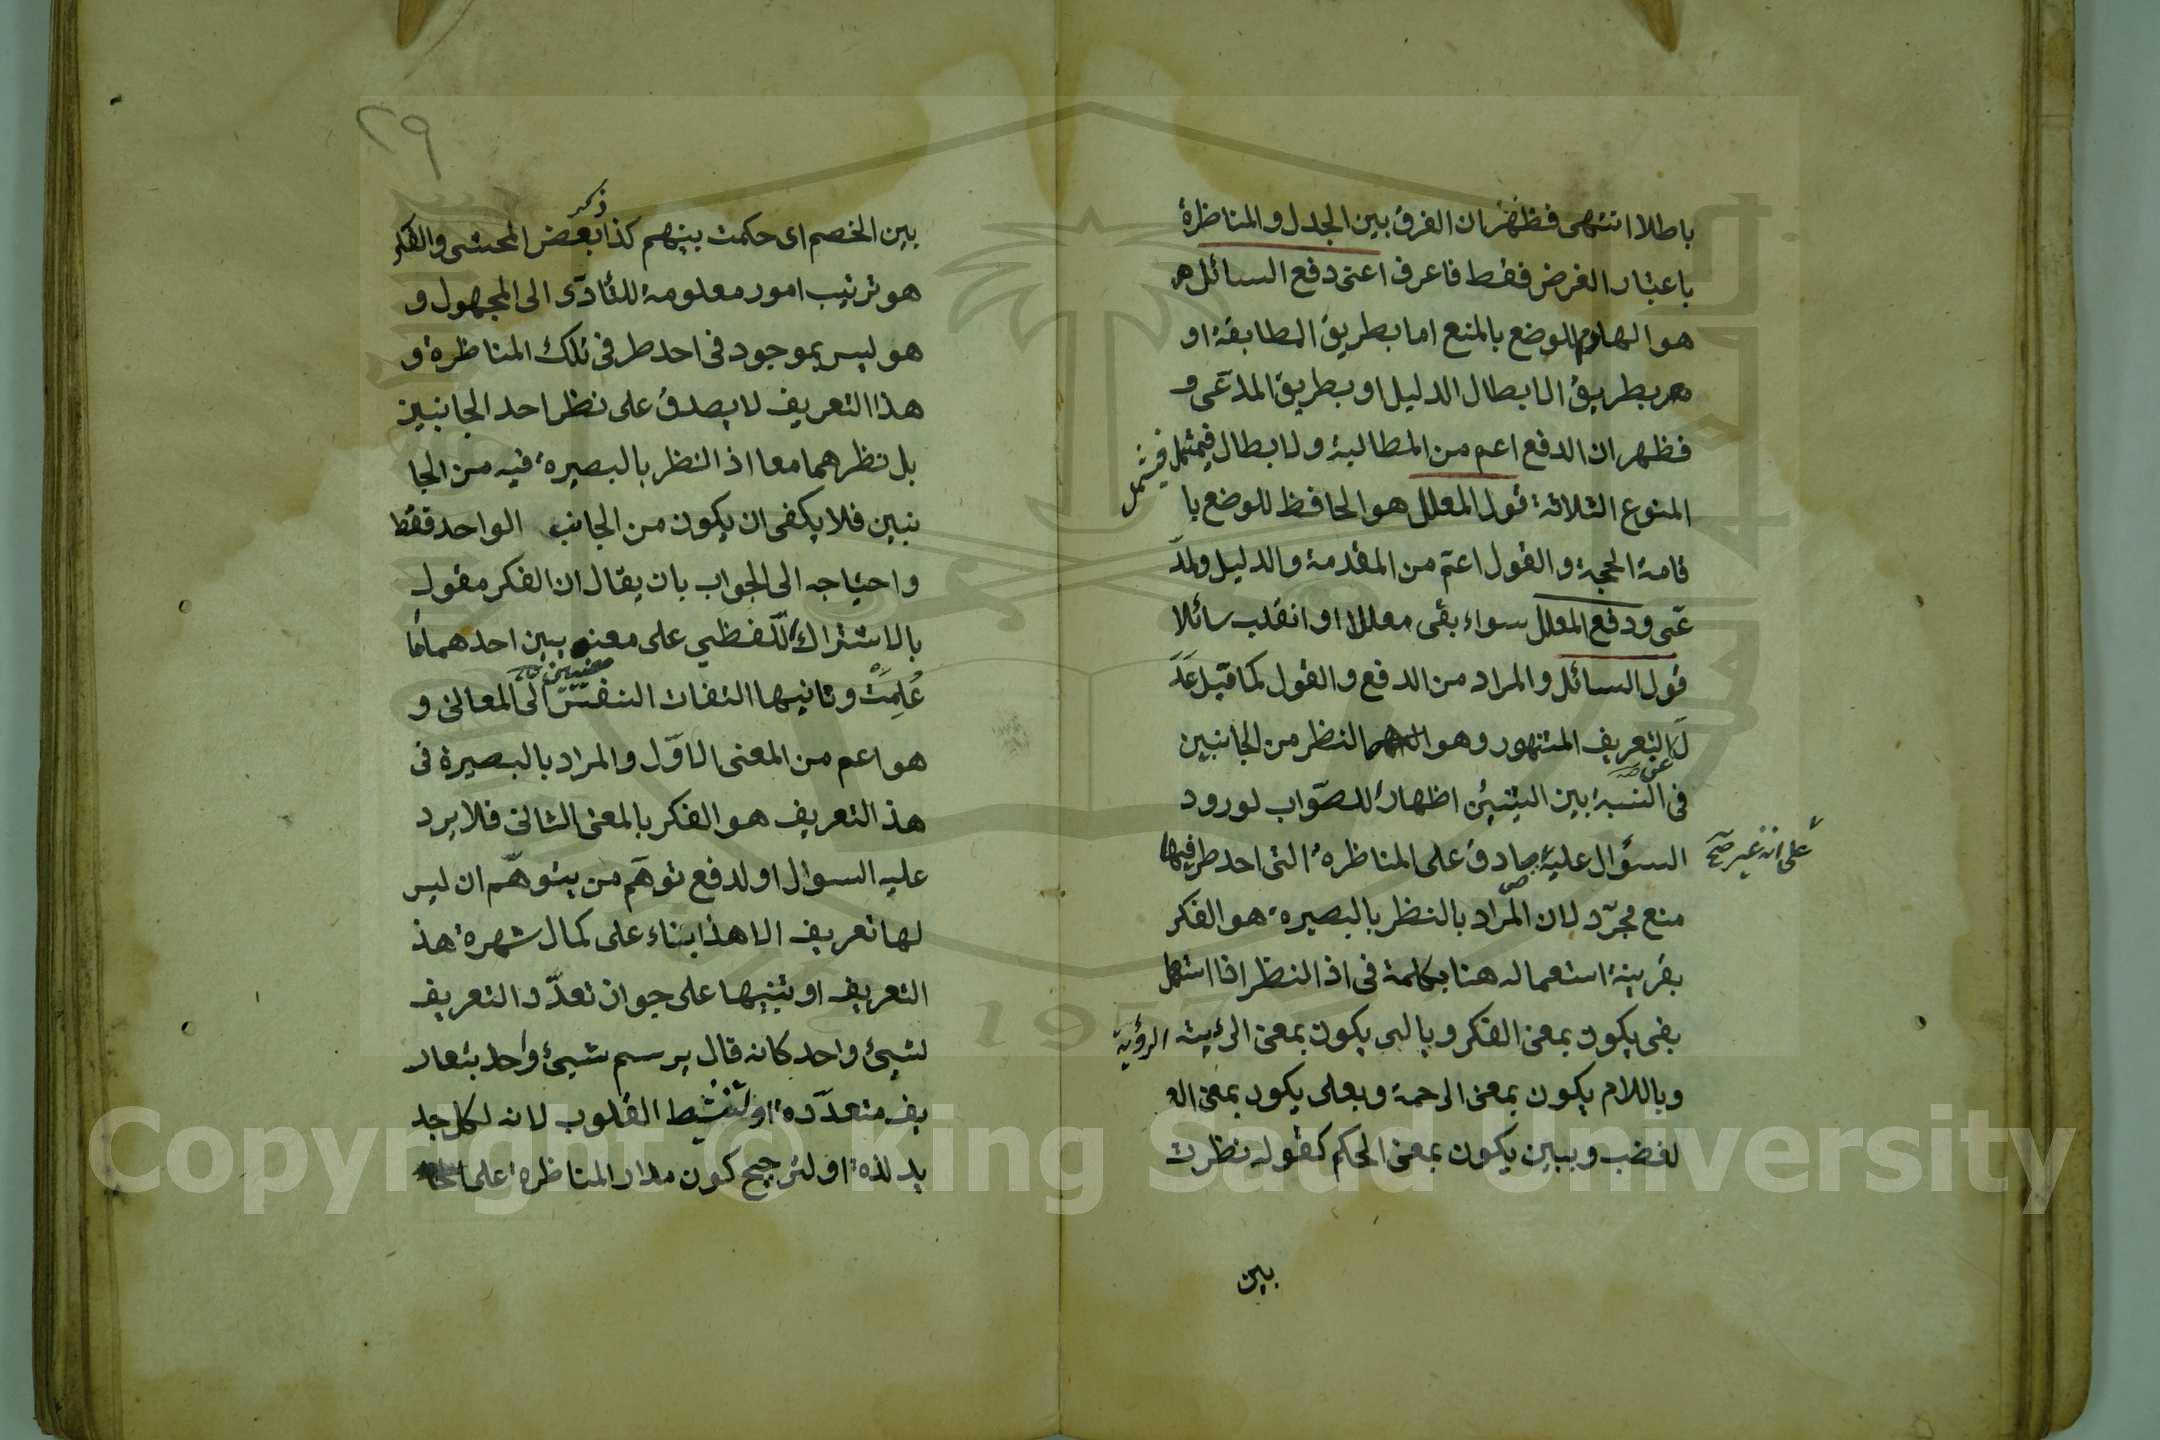 باطلا انتهى فظهر ان الفرق بين الجدل والمناظرة
باعتبار الغرض فقط فاعرف اعنى دفع السائل
هو الهادم للوضع بالمنع اما بطريق المطابقة او
بطريق الابطال الدليل او بطريق المدعى و
فظهر ان الدفع اعم من المطالبة ولابطال فيشمل
فيشمل
المنوع الثلاثة قول المعلل هو الحافظ للوضع با
قامة الحجة والقول اعم من المقدمة والدليل ولمد
عى ودفع المعلل سواء بقى معللا او انقلب سائلا
قول السائل والمراد من الدفع والقول كما قيل عَدَ
لَ عن التعريف المشهور وهو النظر من الجانبين
فى النسبة بين الشيئين اظهارا للصواب لورود
السؤال عليه صادق على المناظرة التى احد طرفيها
على انه غير صح
منع مجرّد لان المراد بالنظر بالبصيرة هو الفكر
بقرينة استعماله هنا بكلمة فى اذ النظر اذا استعمل
بفى يكون بمعنى الفكر وبالى يكون بمعنى الرئيته
الرؤية
وباللام يكون بمعنى الرحمة وبعلى يكون بمعنى الغ
لغضب وببين يكون بمعنى الحكم كقوله نظرت
بين
٢٩
بين الخصم اى حكمت بينهم كذا ذكر بعض المحشى والفكر
هو ترتيب امور معلومة للتادّى الى المجهول و
هو ليس بموجود فى احد طرفى تلك المناظرة و
هذا التعريف لا يصدق على نظر احد الجانبين
بل نظرهما معا اذ النظر بالبصيرة فيه من الجا
نبين فلا يكفى ان يكون من الجانب الواحد فقط
واحتياجه الى الجواب بان يقال ان الفكر مقول
بالاشتراك اللّفظي على معنيين احدهما ما
عُلِمَتْ وثانيها التفات النفس الى المعانى و
هو اعم من المعنى الاوّل والمراد بالبصيرة فى
هذ التعريف هو الفكر بالمعنى الثانى فلا يرد
عليه السوال او لدفع توهّم من يتوهّم ان ليس
لها تعريف الا هذا بناء على كمال شهرة هذ
التعريف او تنبيها على جواز تعدّد التعريف
لشيئ واحد كانه قال يرسم شيئ واحد بتعار
يف متعدّدة او لتنشيط القلوب لانه لكل جد
يد لذة او لترجيح كون مدار المناظرة على
Copyright © King Saud University